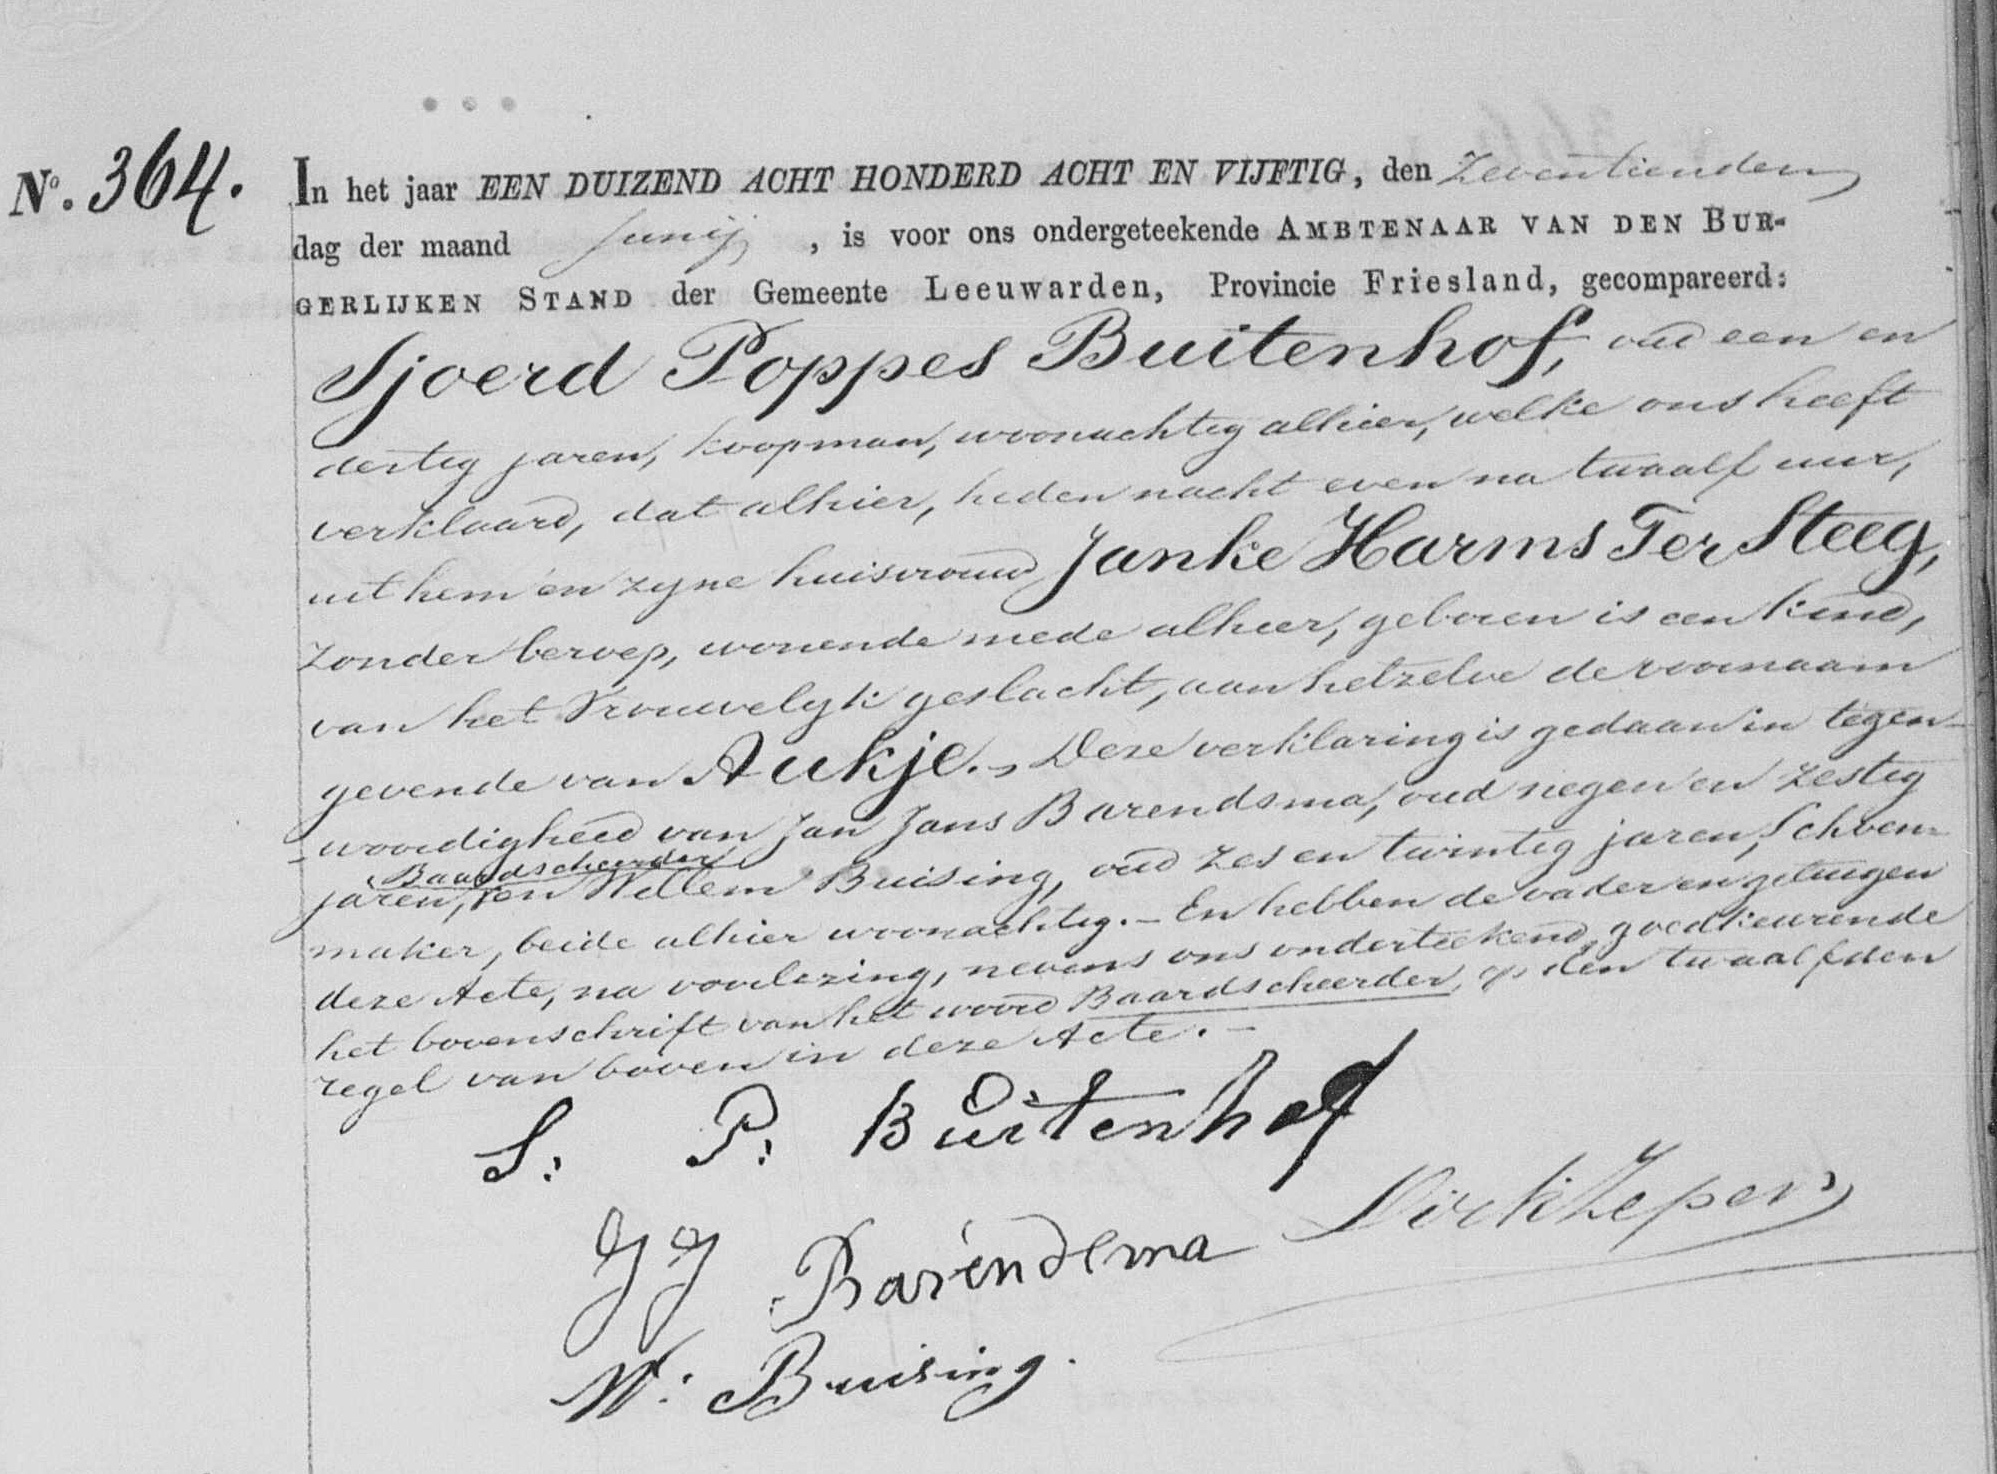 No. 364.
In het jaar EEN DUIZEND ACHT HONDERD ACHT EN VIJFTIG, den Zeventienden
dag der maand Junij, is voor ons ondergeteekende AMBTENAAR VAN DEN BUR-
GERLIJKEN STAND der Gemeente Leeuwarden, Provincie Friesland, gecompareerd:
Sjoerd Poppes Buitenhof, oud een en
dertig jaren, koopman, woonachtig alhier, welke ons heeft
verklaard, dat alhier, heden nacht even na twaalf uur,
uit hem en zyne huisvrouw Janke Harms Ter Steeg,
zonder beroep, wonende mede alhier, geboren is een kind,
van het Vrouwelyk geslacht, aan hetzelve de voornaam
gevende van Aukje. Deze verklaring is gedaan in tegen-
-woordigheid van Jan Jans Barendsma, oud negen en zestig
Baardscheerder
jaren, en Willem Buising, oud zes en twintig jaren, Schoen-
maker, beide alhier woonachtig. - En hebben de vader en getuigen
deze Acte, na voorlezing, nevens ons onderteekend, goedkeurende
het bovenschrift van het woord Baardscheerder, op den twaalfden
regel van boven in deze Acte. -
S: P: Buitenhof
Dirk Zeper
JJ Barendsma
W: Buising.